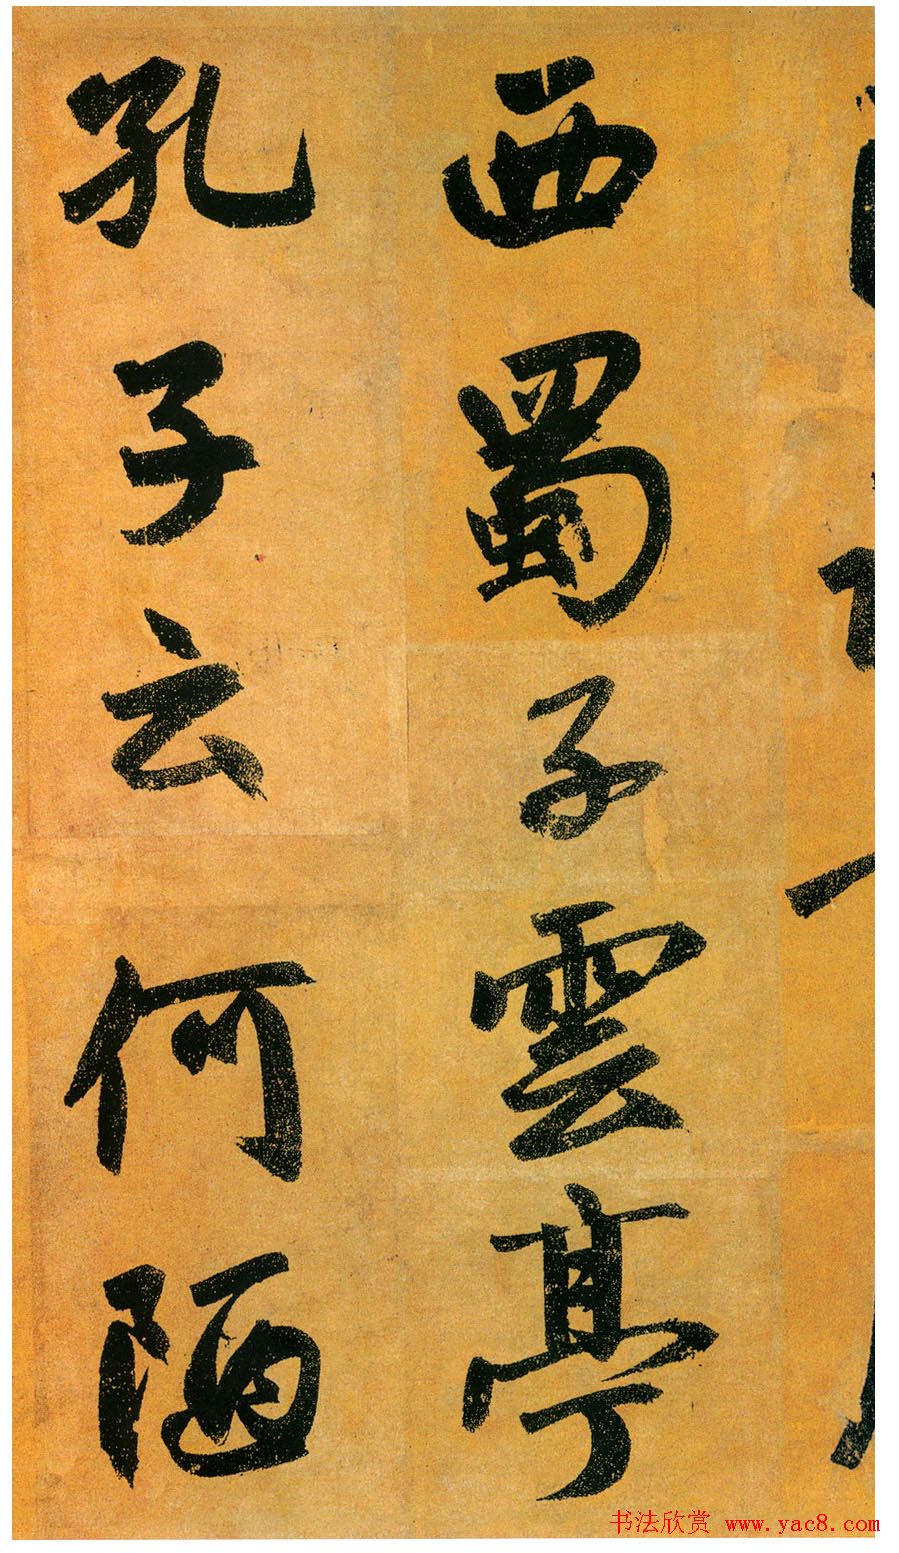 西蜀子雲亭
孔子云何陋
书法欣赏 www.yac8.com